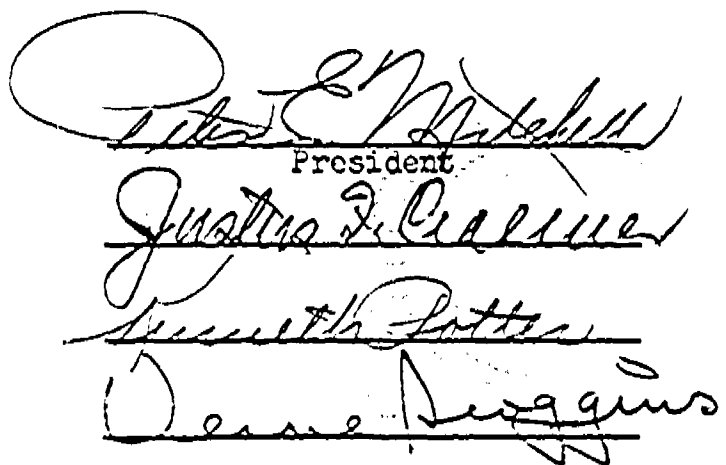 Peter E. Mitchell
President
Justus F. Craemer
Kenneth Potter
Huggins